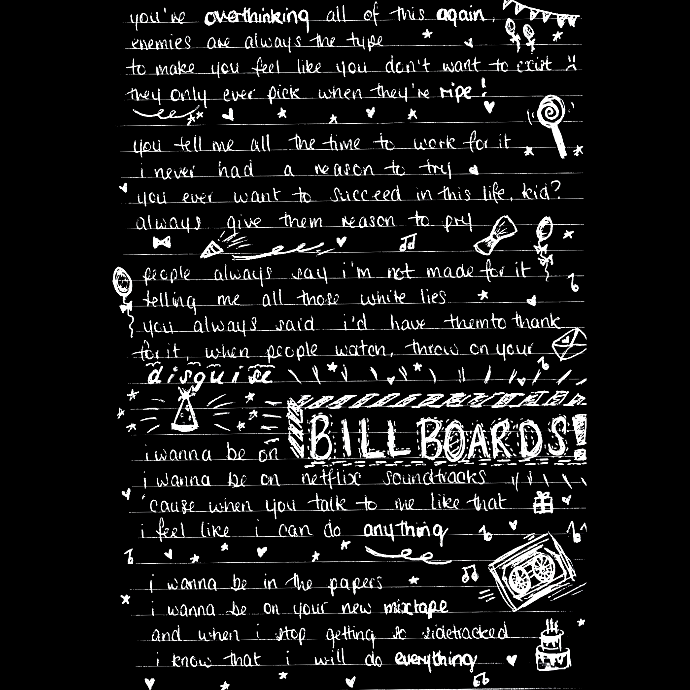 you're overthinking all of this again,
enemies are always the type
to make you feel like you don't want to exist
they only ever pick when they're ripe!
you tell me all the time to work for it
i never had a reason to try
you ever want to succeed in this life, kid?
always give them reason to pry
people always say i'm not made for it
telling me all those white lies
you always said i'd have them to thank
for it, when people watch, throw on your
disguise
i wanna be on BILLBOARDS!
i wanna be on netflix soundtracks
'cause when you talk to me like that
i feel like i can do anything
i wanna be in the papers
i wanna be on your new mixtape
and when i stop getting so sidetracked
i know that i will do everything